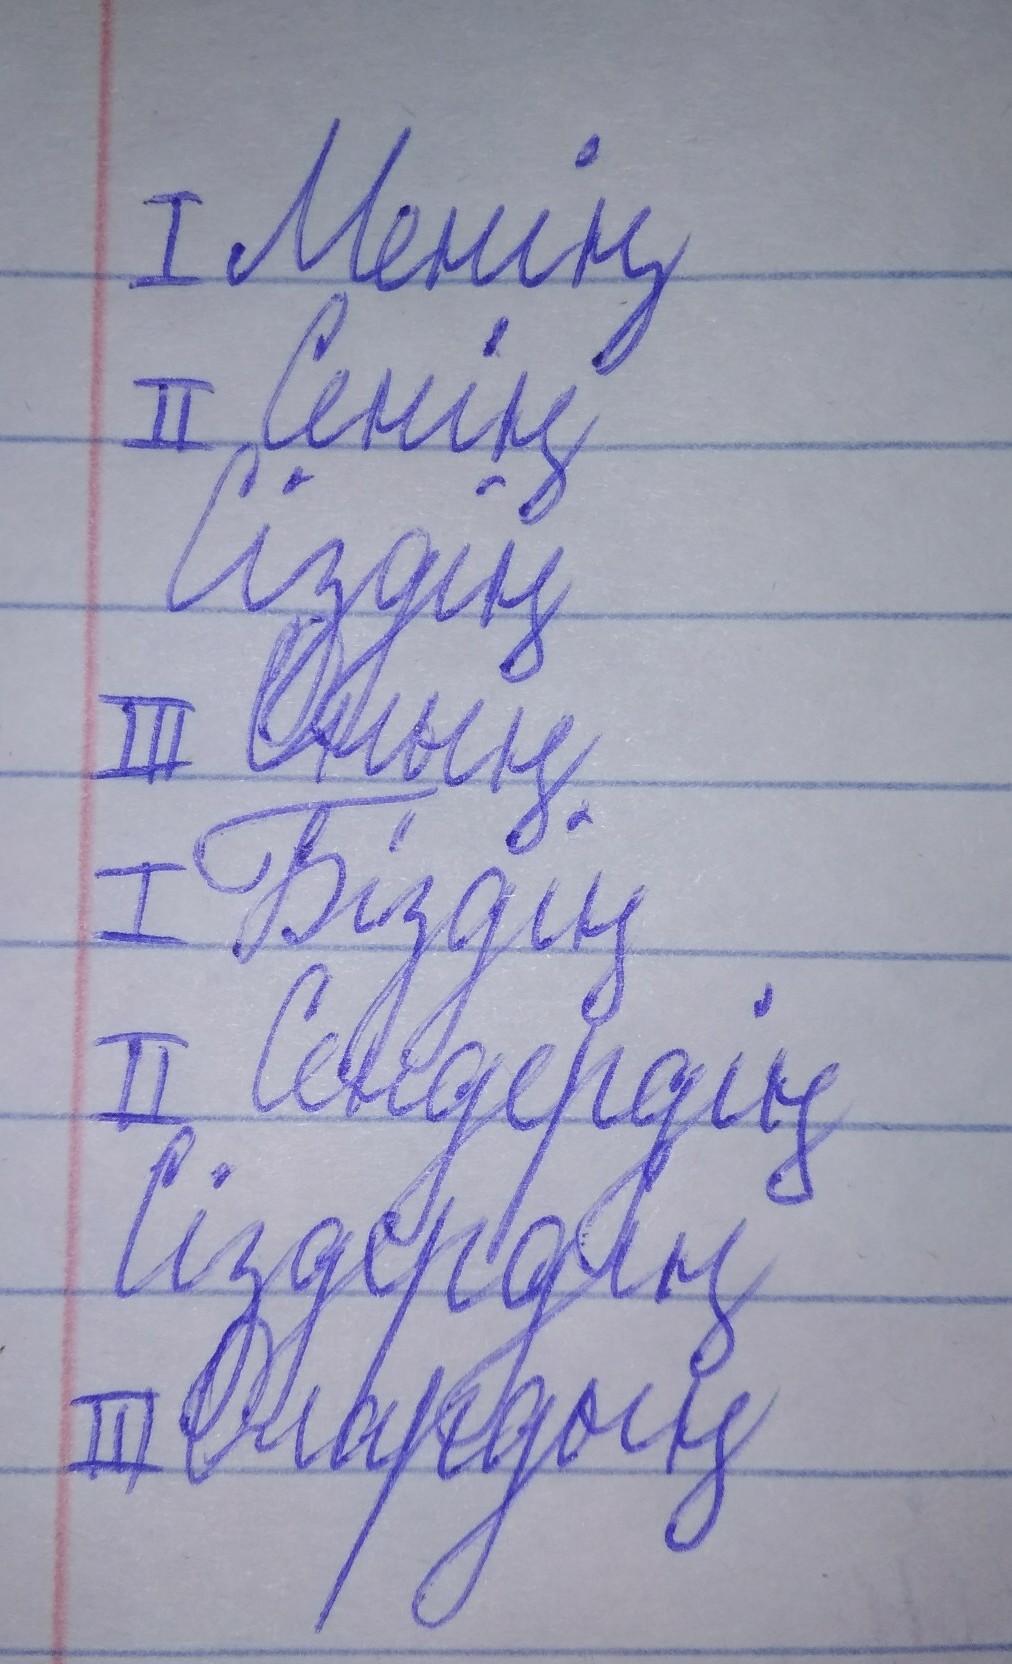 I Менің
II Сенің
Сіздің
III Оның
I Біздің
II Сендердің
Сіздердің
III Олардың